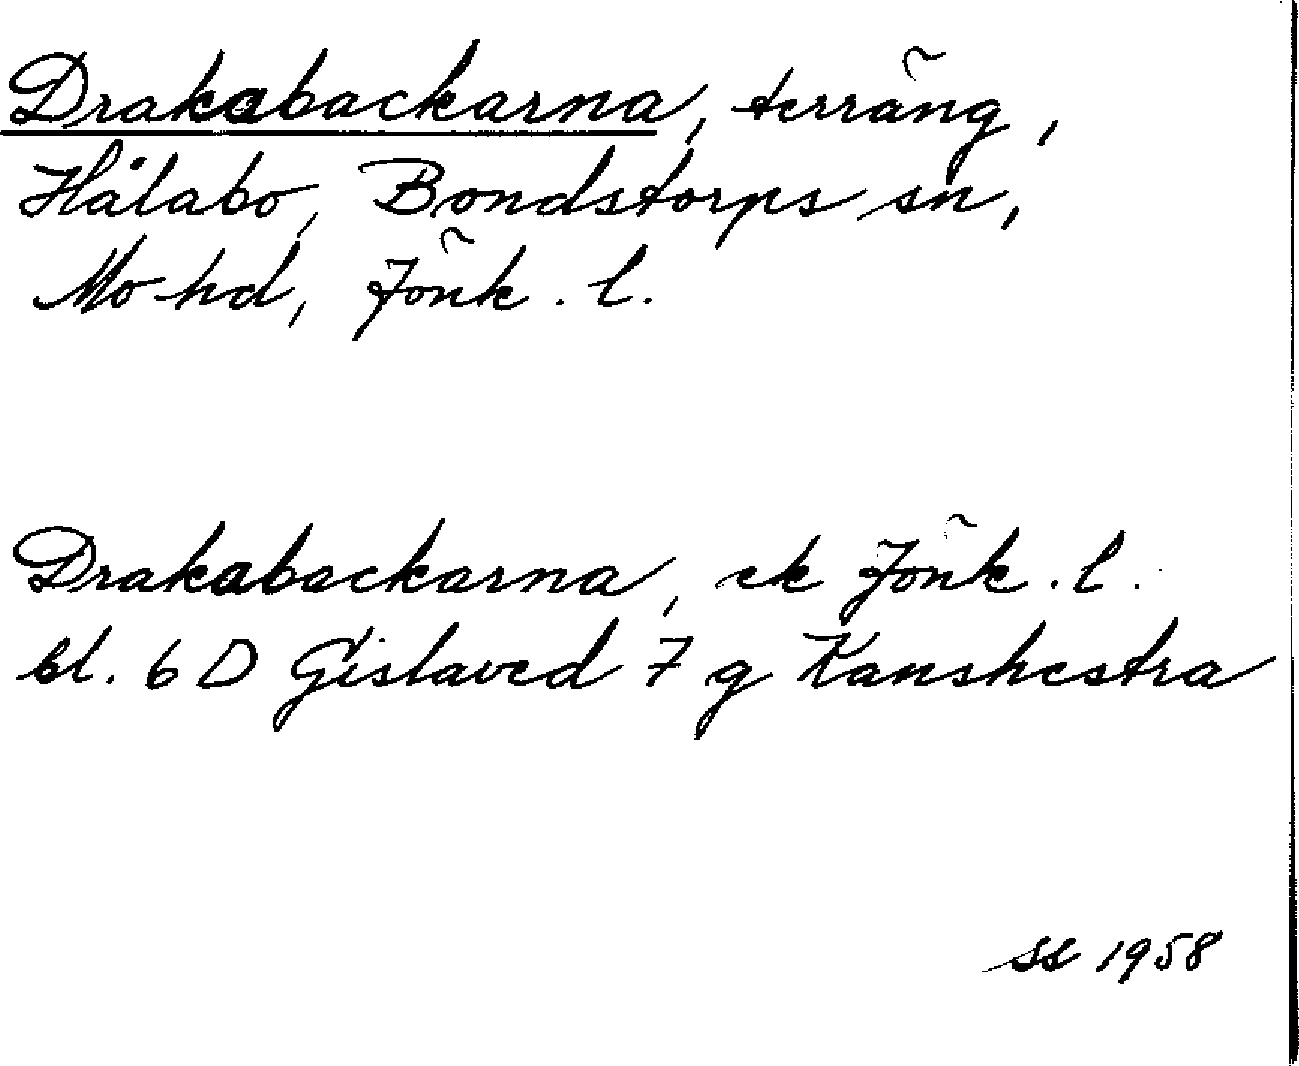 Drakabackarna, terräng,
Hålabo, Bondstorps sn,
Mo hd, Jönk. l.
Drakabackarna, ek Jönk. l.
bl. 6 D Gislaved 7 g Kanshestra
SS 1958